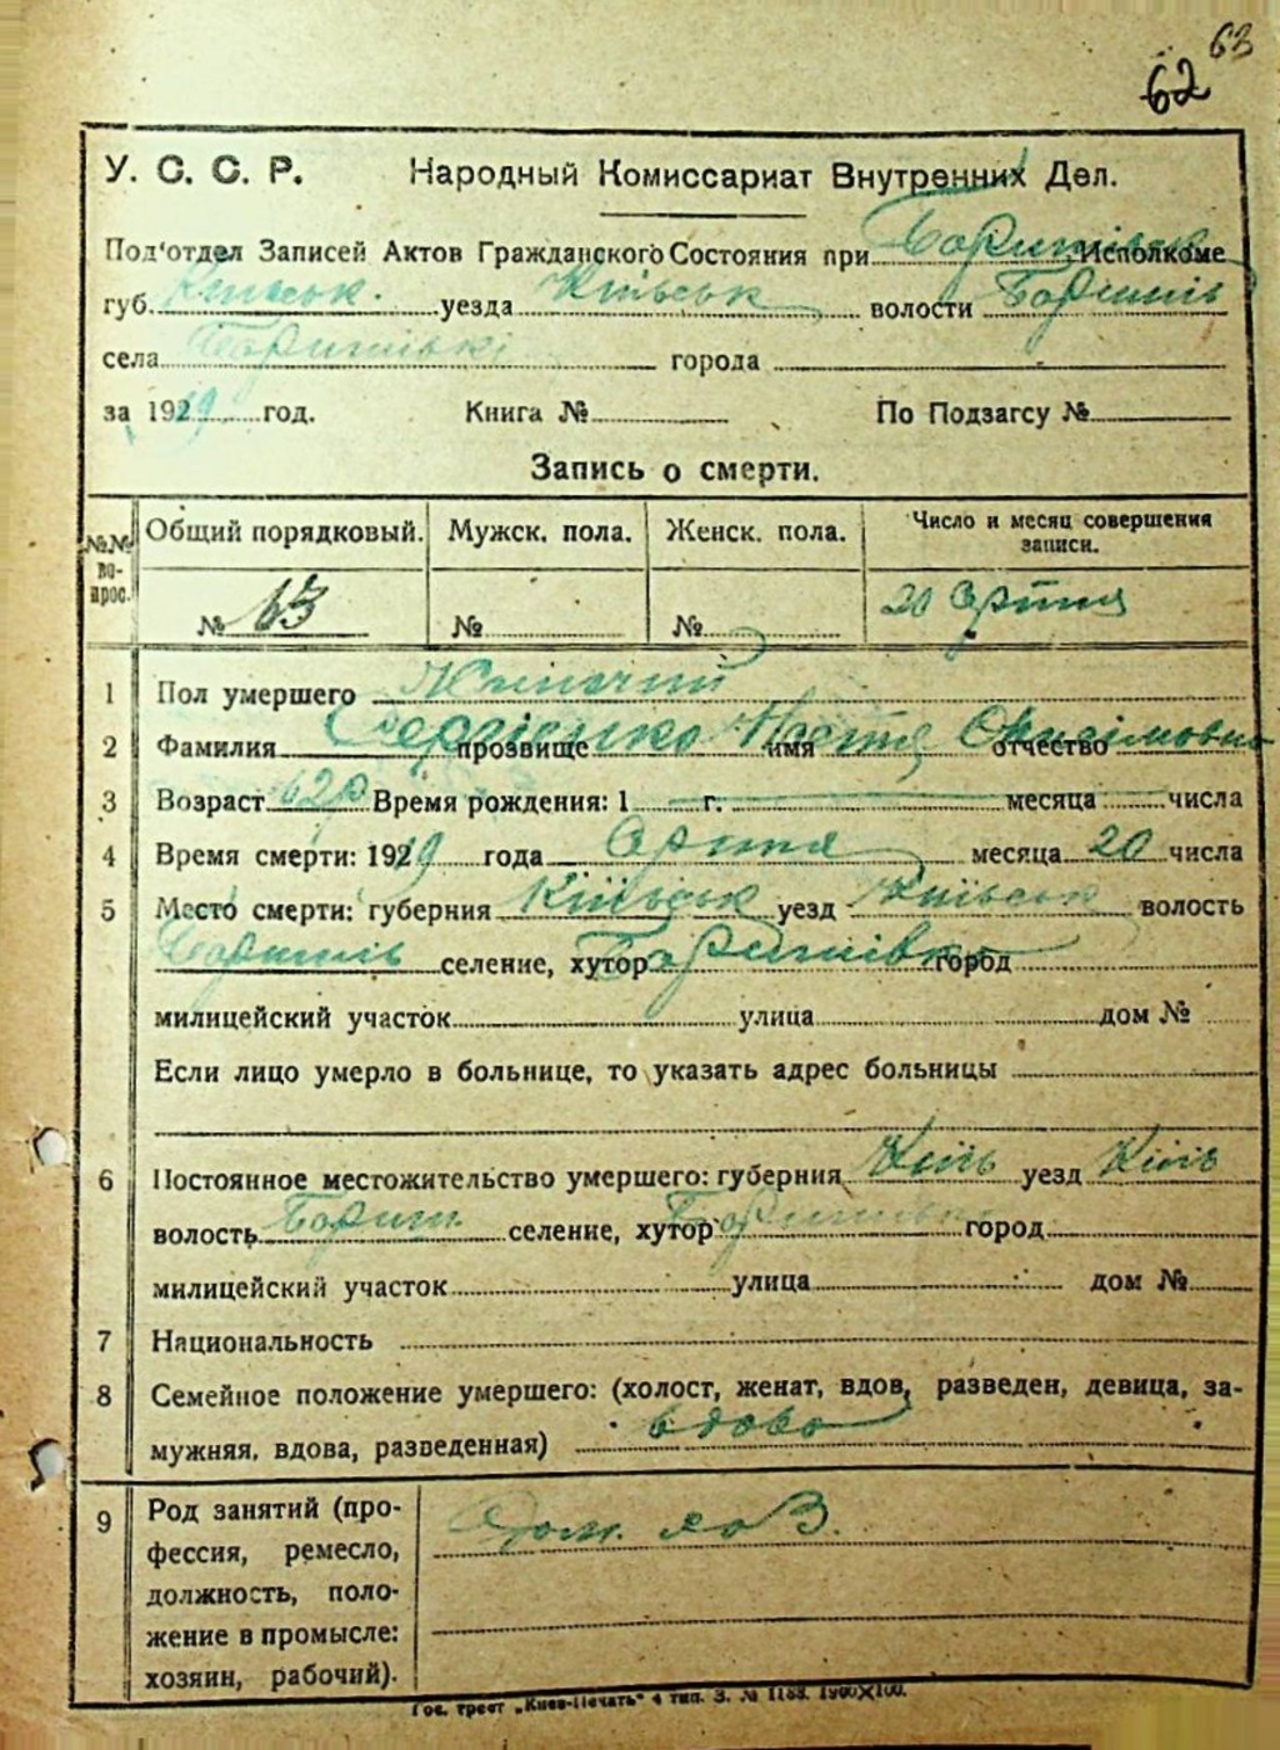 63
62
У. С. С. Р. Народный Комиссариат Внутренних Дел.
Под'отдел Записей Актов Гражданского Состояния при Исполкоме
губ. Київськ. уезда Київськ волости Боришпіль
села города
за 1929 год. Книга № По Подзагсу №
Запись о смерти.
№№ вопрос. Общий порядковый. Мужск. пола. Женск. пола. Число и месяц совершения записи.
№ 63 № № 20
1 Пол умершего Жіночий
2 Фамилия Сергієнко прозвище имя Настя отчество Онисімовна
3 Возраст 62р Время рождения: 1 г. месяца числа
4 Время смерти: 1929 года месяца 20 числа
5 Место смерти: губерния Київськ уезд Київськ волость
селение, хутор город
милицейский участок улица дом №
Если лицо умерло в больнице, то указать адрес больницы
6 Постоянное местожительство умершего: губерния Київ уезд Київ
волость Бориш. селение, хутор город
милицейский участок улица дом №
7 Национальность
8 Семейное положение умершего: (холост, женат, вдов, разведен, девица, за-
мужняя, вдова, разведенная) вдова
9 Род занятий (про- Дом. хоз.
фессия, ремесло,
должность, поло-
жение в промысле:
хозяин, рабочий).
Гос. трест „Киев-Печать" 4 тип. З. № 1183. 1900×100.